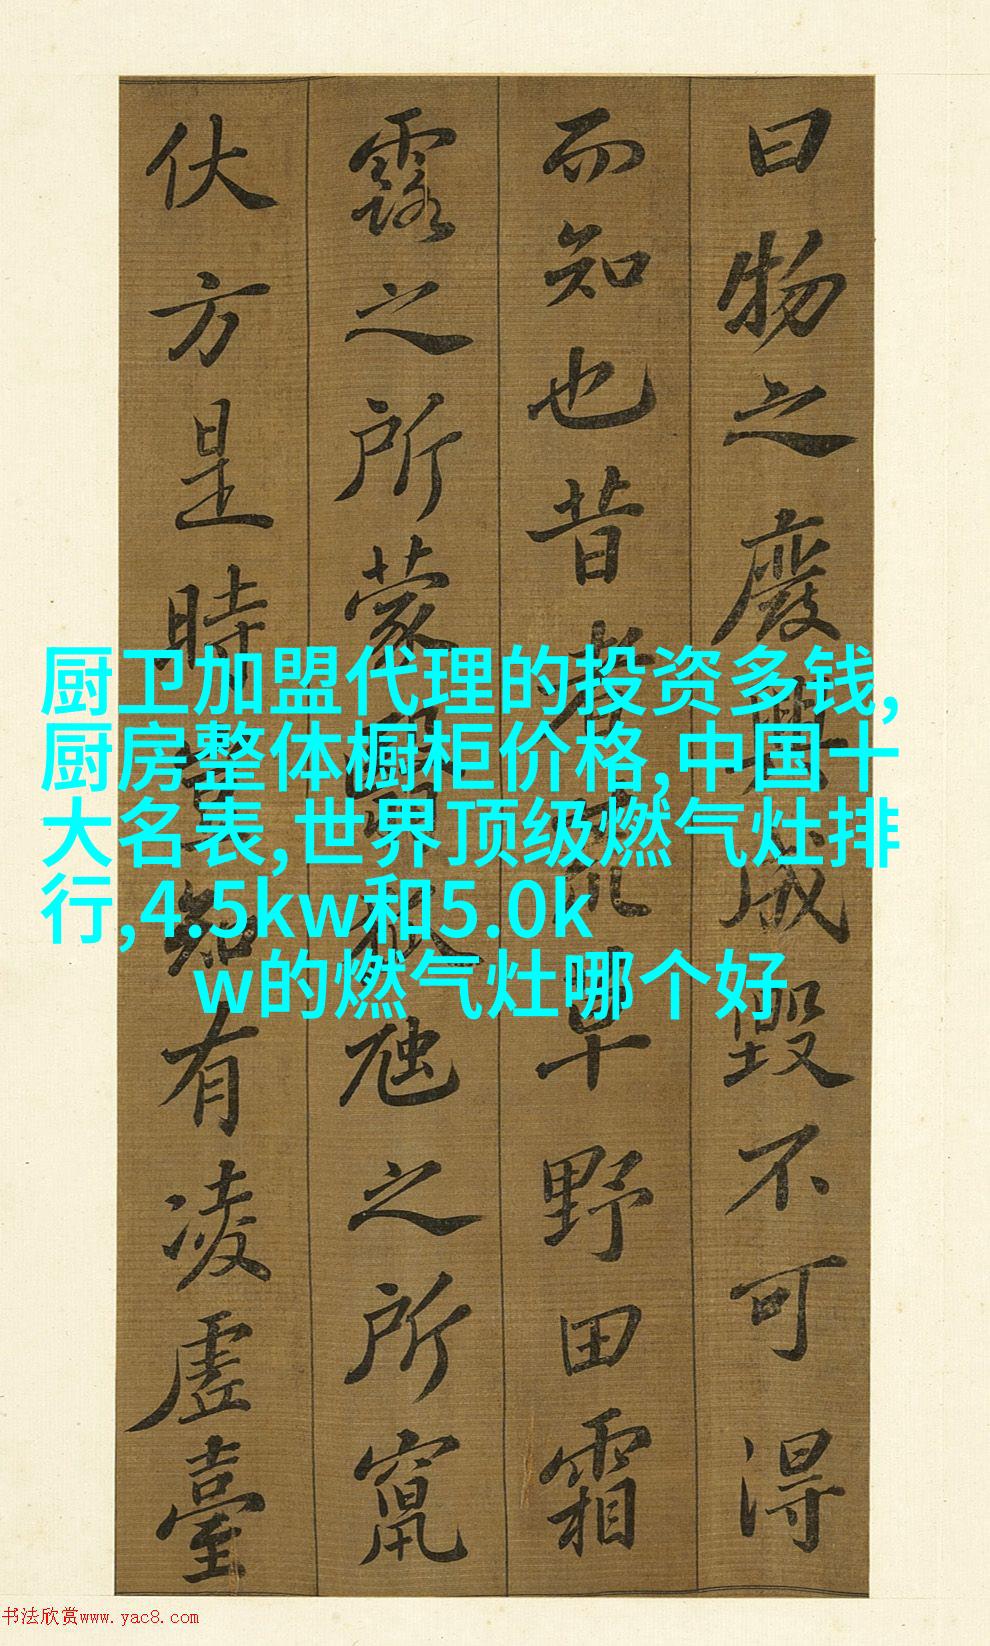 曰物之廢興成毀不可得
而知也昔者荒草野田霜
露之所蒙翳狐虺之所竄
伏方是時豈知有凌虛臺
厨卫加盟代理的投资多钱,
厨房整体橱柜价格,中国十
大名表,世界顶级燃气灶排
行,4.5kw和5.0k
w的燃气灶哪个好
书法欣赏www.yac8.com